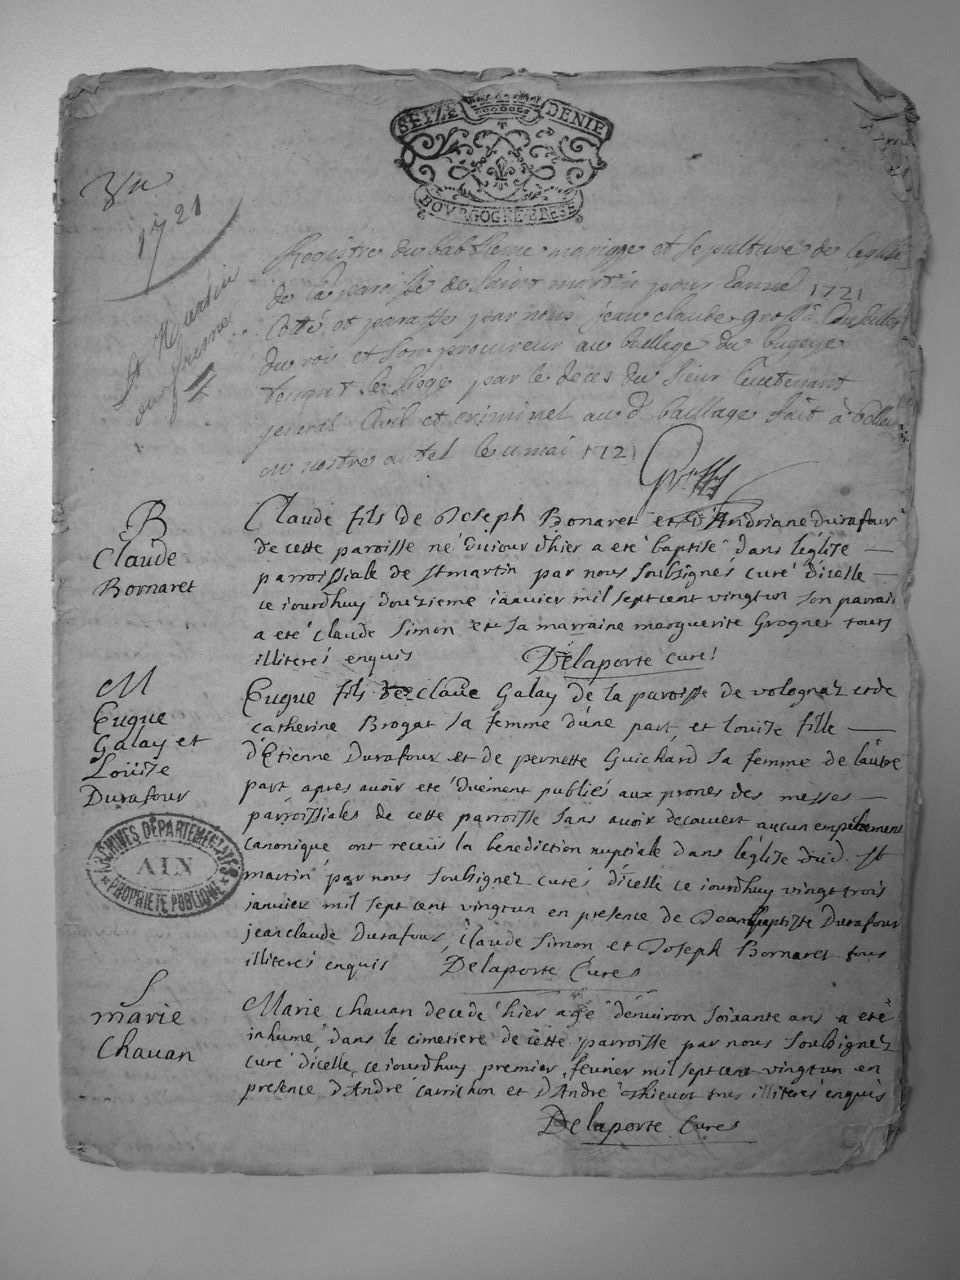 SEIZE DENIE
BOVRGOGNE BRESSE
Un
1721
St Martin
4
Registre du babtesme mariage et sepulture de leglise
de la paroisse de saint martin pour lanne 1721
Cotté et paraffe par nous jean claude gros Conseiller
du roi et son procureur au baillage du bugeye
tenant le siege par le deces du sieur lieutenant
jeneral Civil et criminel au d baillage fait à belley
en nostre otel le mai 1721
B
Claude
Bornaret
Claude fils de Joseph Bonaret et d'Andriane durafour
de cette paroisse né du jour dhier a eté baptisé dans léglise
parroissiale de St martin par nous soubsigné curé dicelle
ce iourdhuy douzieme ianvier mil sept cent vingt un son parrain
a eté claude Simon et sa marraine marguerite Grognet tous
illiterés enquis Delaporte curé
M
Eugue
Galay et
Loüise
Durafour
Eugue fils de claude Galay de la paroisse de volognaz et de
catherine Brogat sa femme d'une part, et louise fille
d'Etienne Durafour et de pernette Guichard sa femme de lautre
part apres avoir eté duement publiés aux prones des messes
parroissiales de cette parroisse sans avoir decouvert aucun empechement
canonique ont receüs la benediction nuptiale dans léglise dud. St
martin par nous soubsignez curé dicelle ce iourdhuy vingt trois
janvier mil sept cent vingt un en presence de Jean baptiste Durafour
jean claude Durafour, claude Simon et Joseph Bornaret tous
illiterés enquis Delaporte Curé
S
marie
Chavan
Marie chavan decedé hier agé denviron soixante ans a eté
inhumé dans le cimetiere de cette parroisse par nous soubsignez
curé dicelle ce iourdhuy premier fevrier mil sept cent vingt un en
presence d'André carrichon et d'André thievot tous illiterés enquis
Delaporte Curé
ARCHIVES DÉPARTEMENTALES
AIN
PROPRIÉTÉ PUBLIQUE